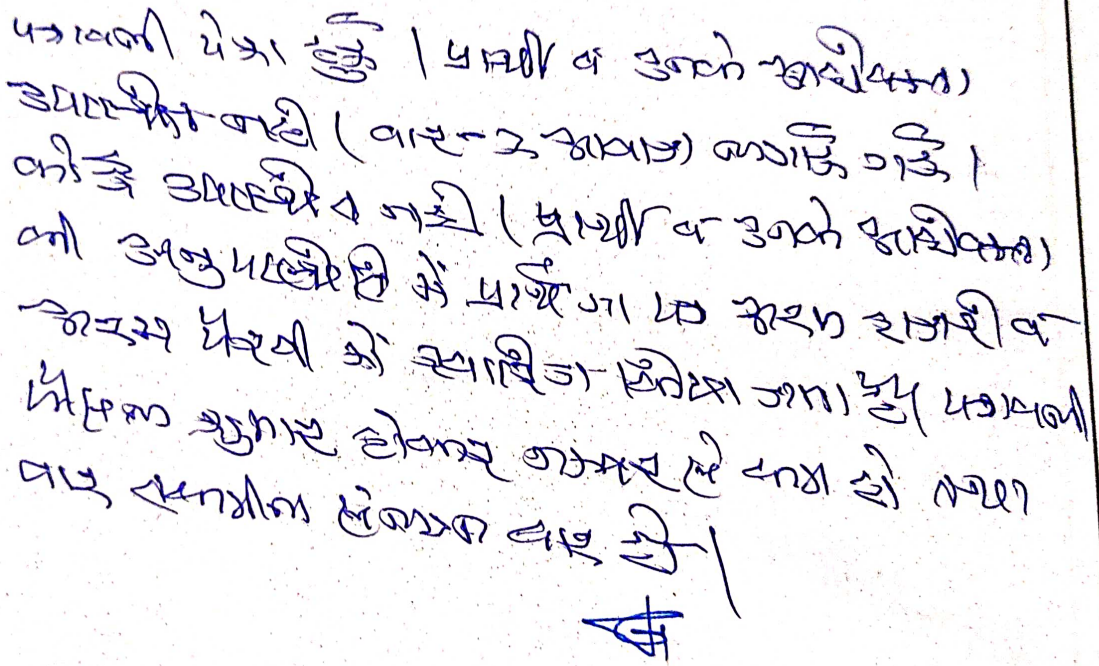 पत्रावली पेश हुई। प्रार्थी व उनके अधिवक्ता
उपस्थित नही। बार-2 आवाज लगाई गई।
कोई उपस्थित नही। प्रार्थी व उनके अधिवक्ता
की अनुपस्थिति में प्रार्थना पत्र अदम हाजरी व
अदम पैरवी में खारिज किया जाता है। पत्रावली
फैसल शुमार होकर नम्बर से कम हो तथा
बाद तकमील संलग्न वाद हो।